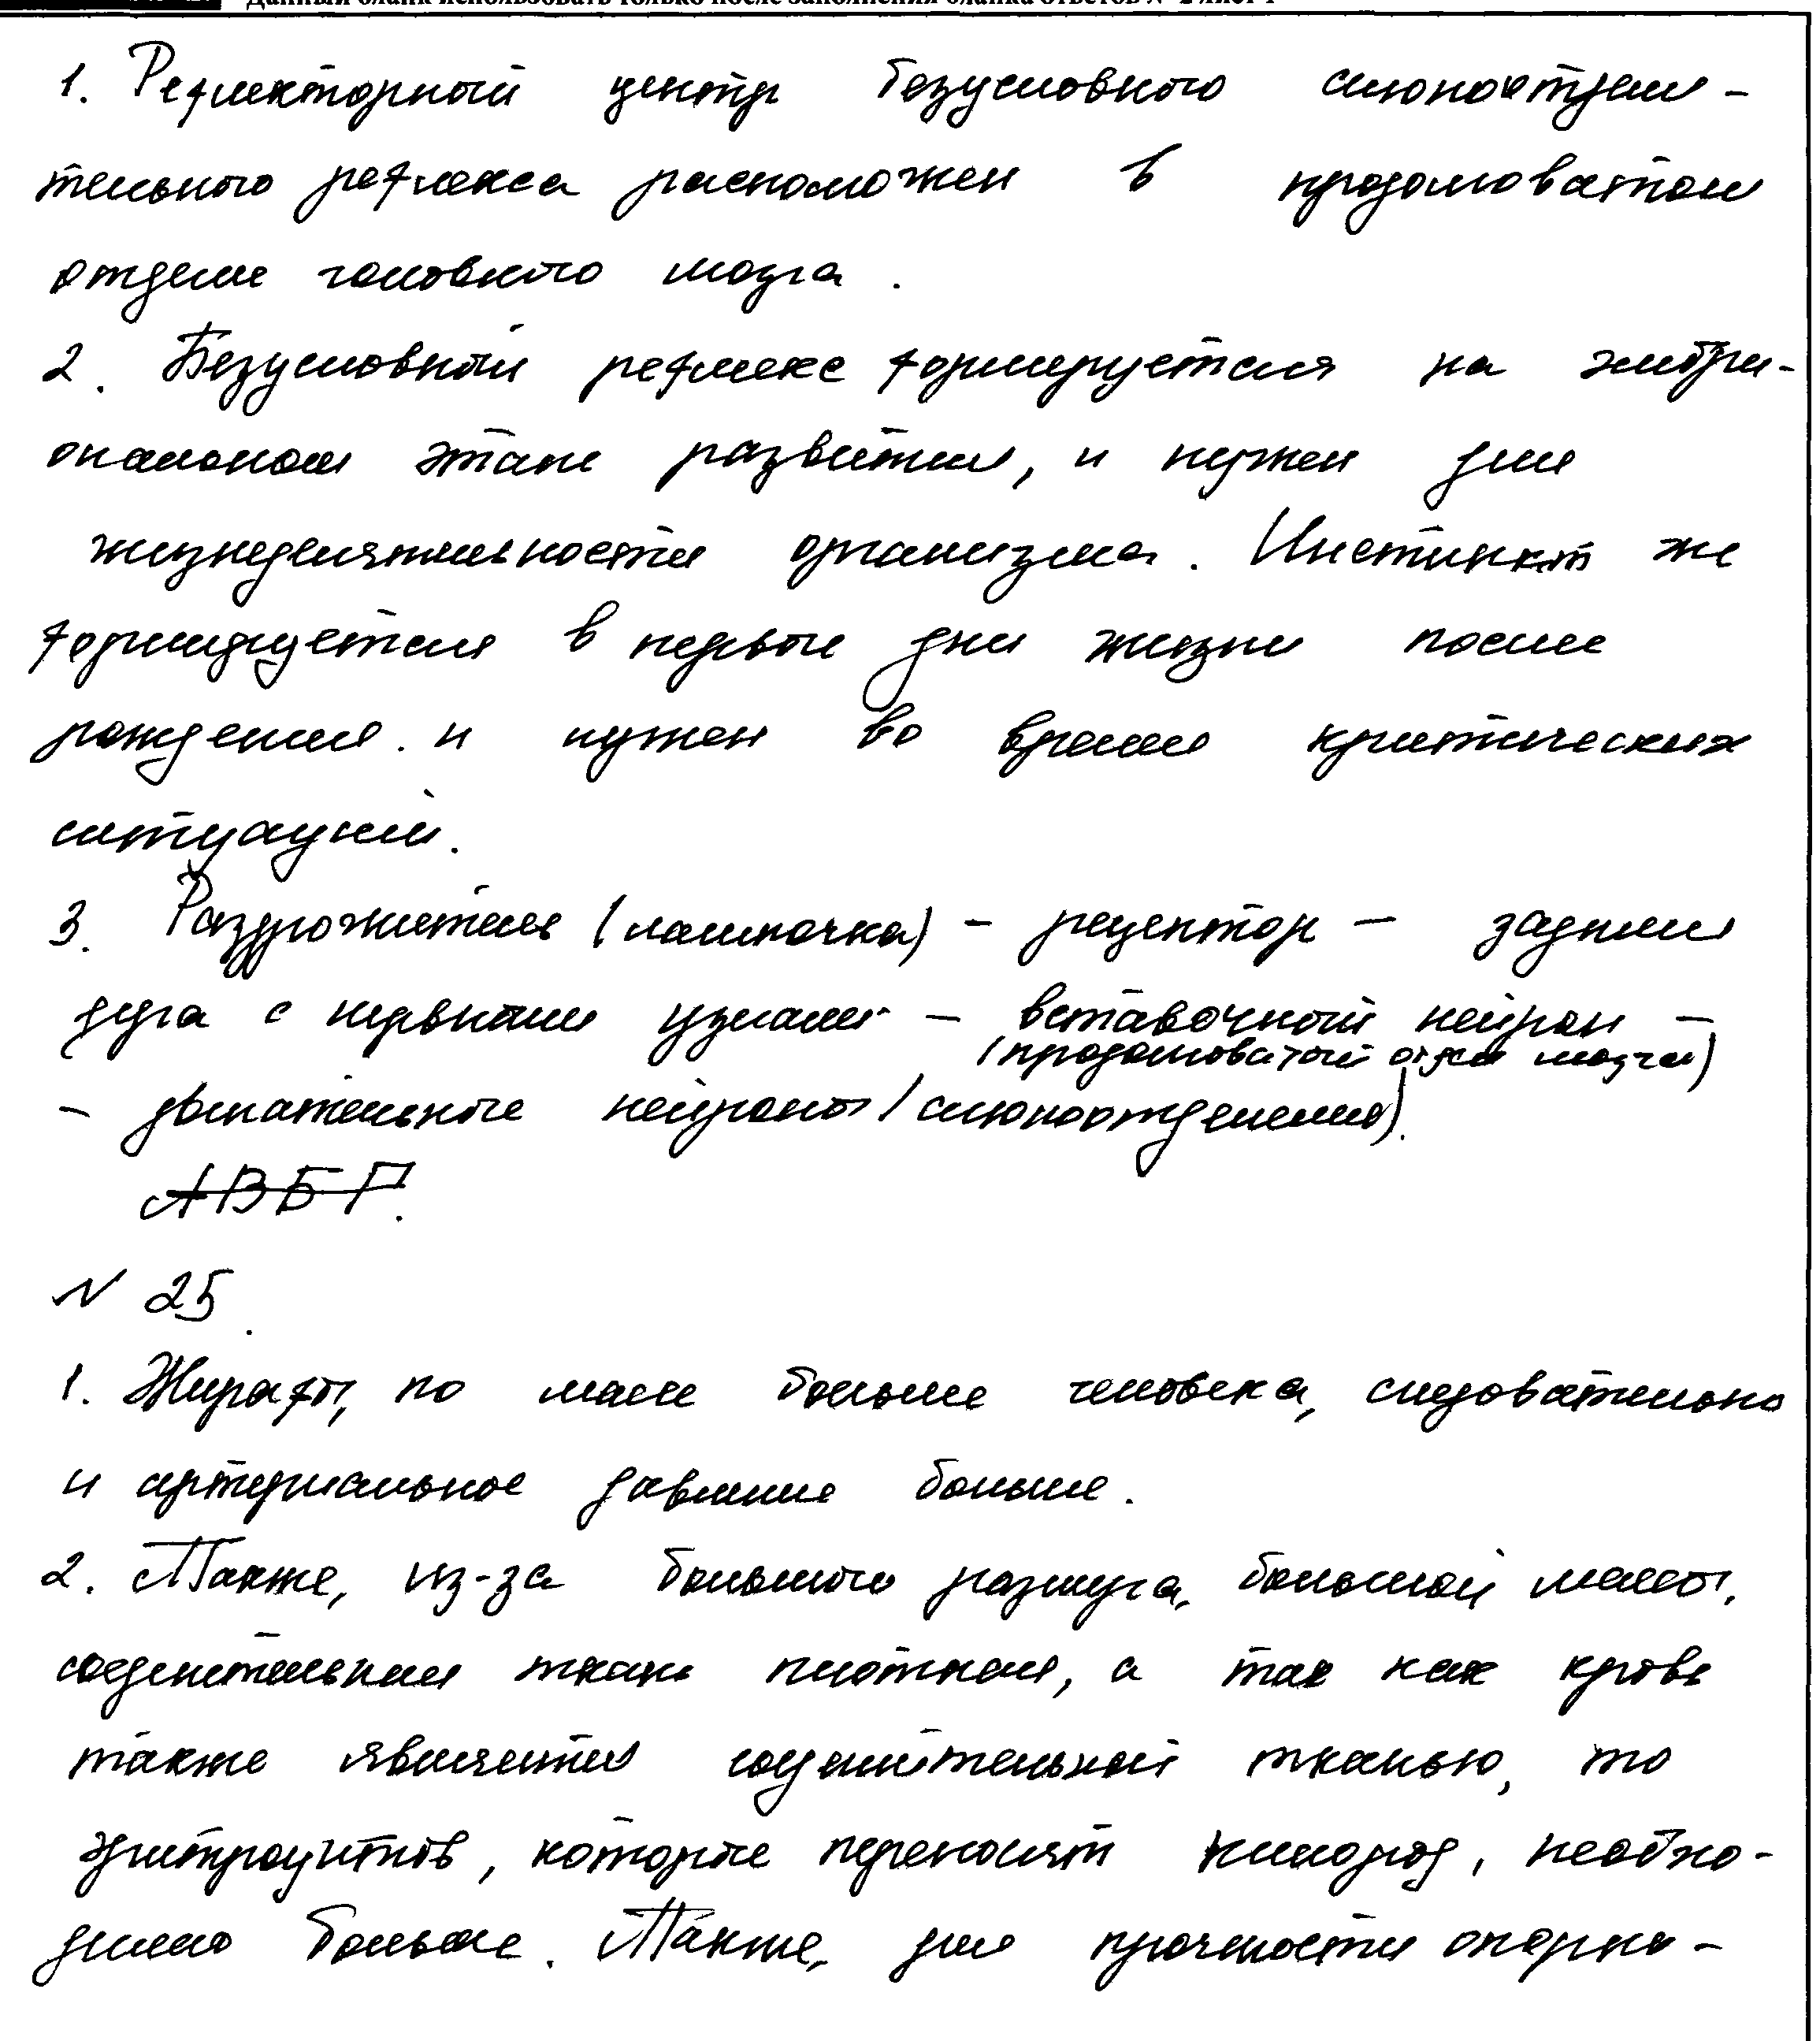 Данный бланк использовать только после заполнения бланка ответов № 2 лист 1
1. Рефлекторный центр безусловного слюноотдели-
тельного рефлекса расположен в продолговатом
отделе головного мозга.
2. Безусловный рефлекс формируется на эмбри-
ональном этапе развития, и нужен для
жизнедеятельности организма. Инстинкт же
формируется в первые дни жизни после
рождения. и нужен во время критических
ситуаций.
3. Раздрожитель (лампочка) – рецептор – задняя
дуга с нервными узлами – вставочный нейрон –
(продолговатый отдел мозга)
– двигательные нейроны (слюноотделения).
АВБГ.
N 25.
1. Жирафы, по массе больше человека, следовательно
и артериальное давление больше.
2. Также, из-за большого размера, большой массы,
соединительная ткань плотная, а так как кровь
также является соединительной тканью, то
эритроцитов, которые переносят кислород, необхо-
димо больше. Также, для прочности опорно-